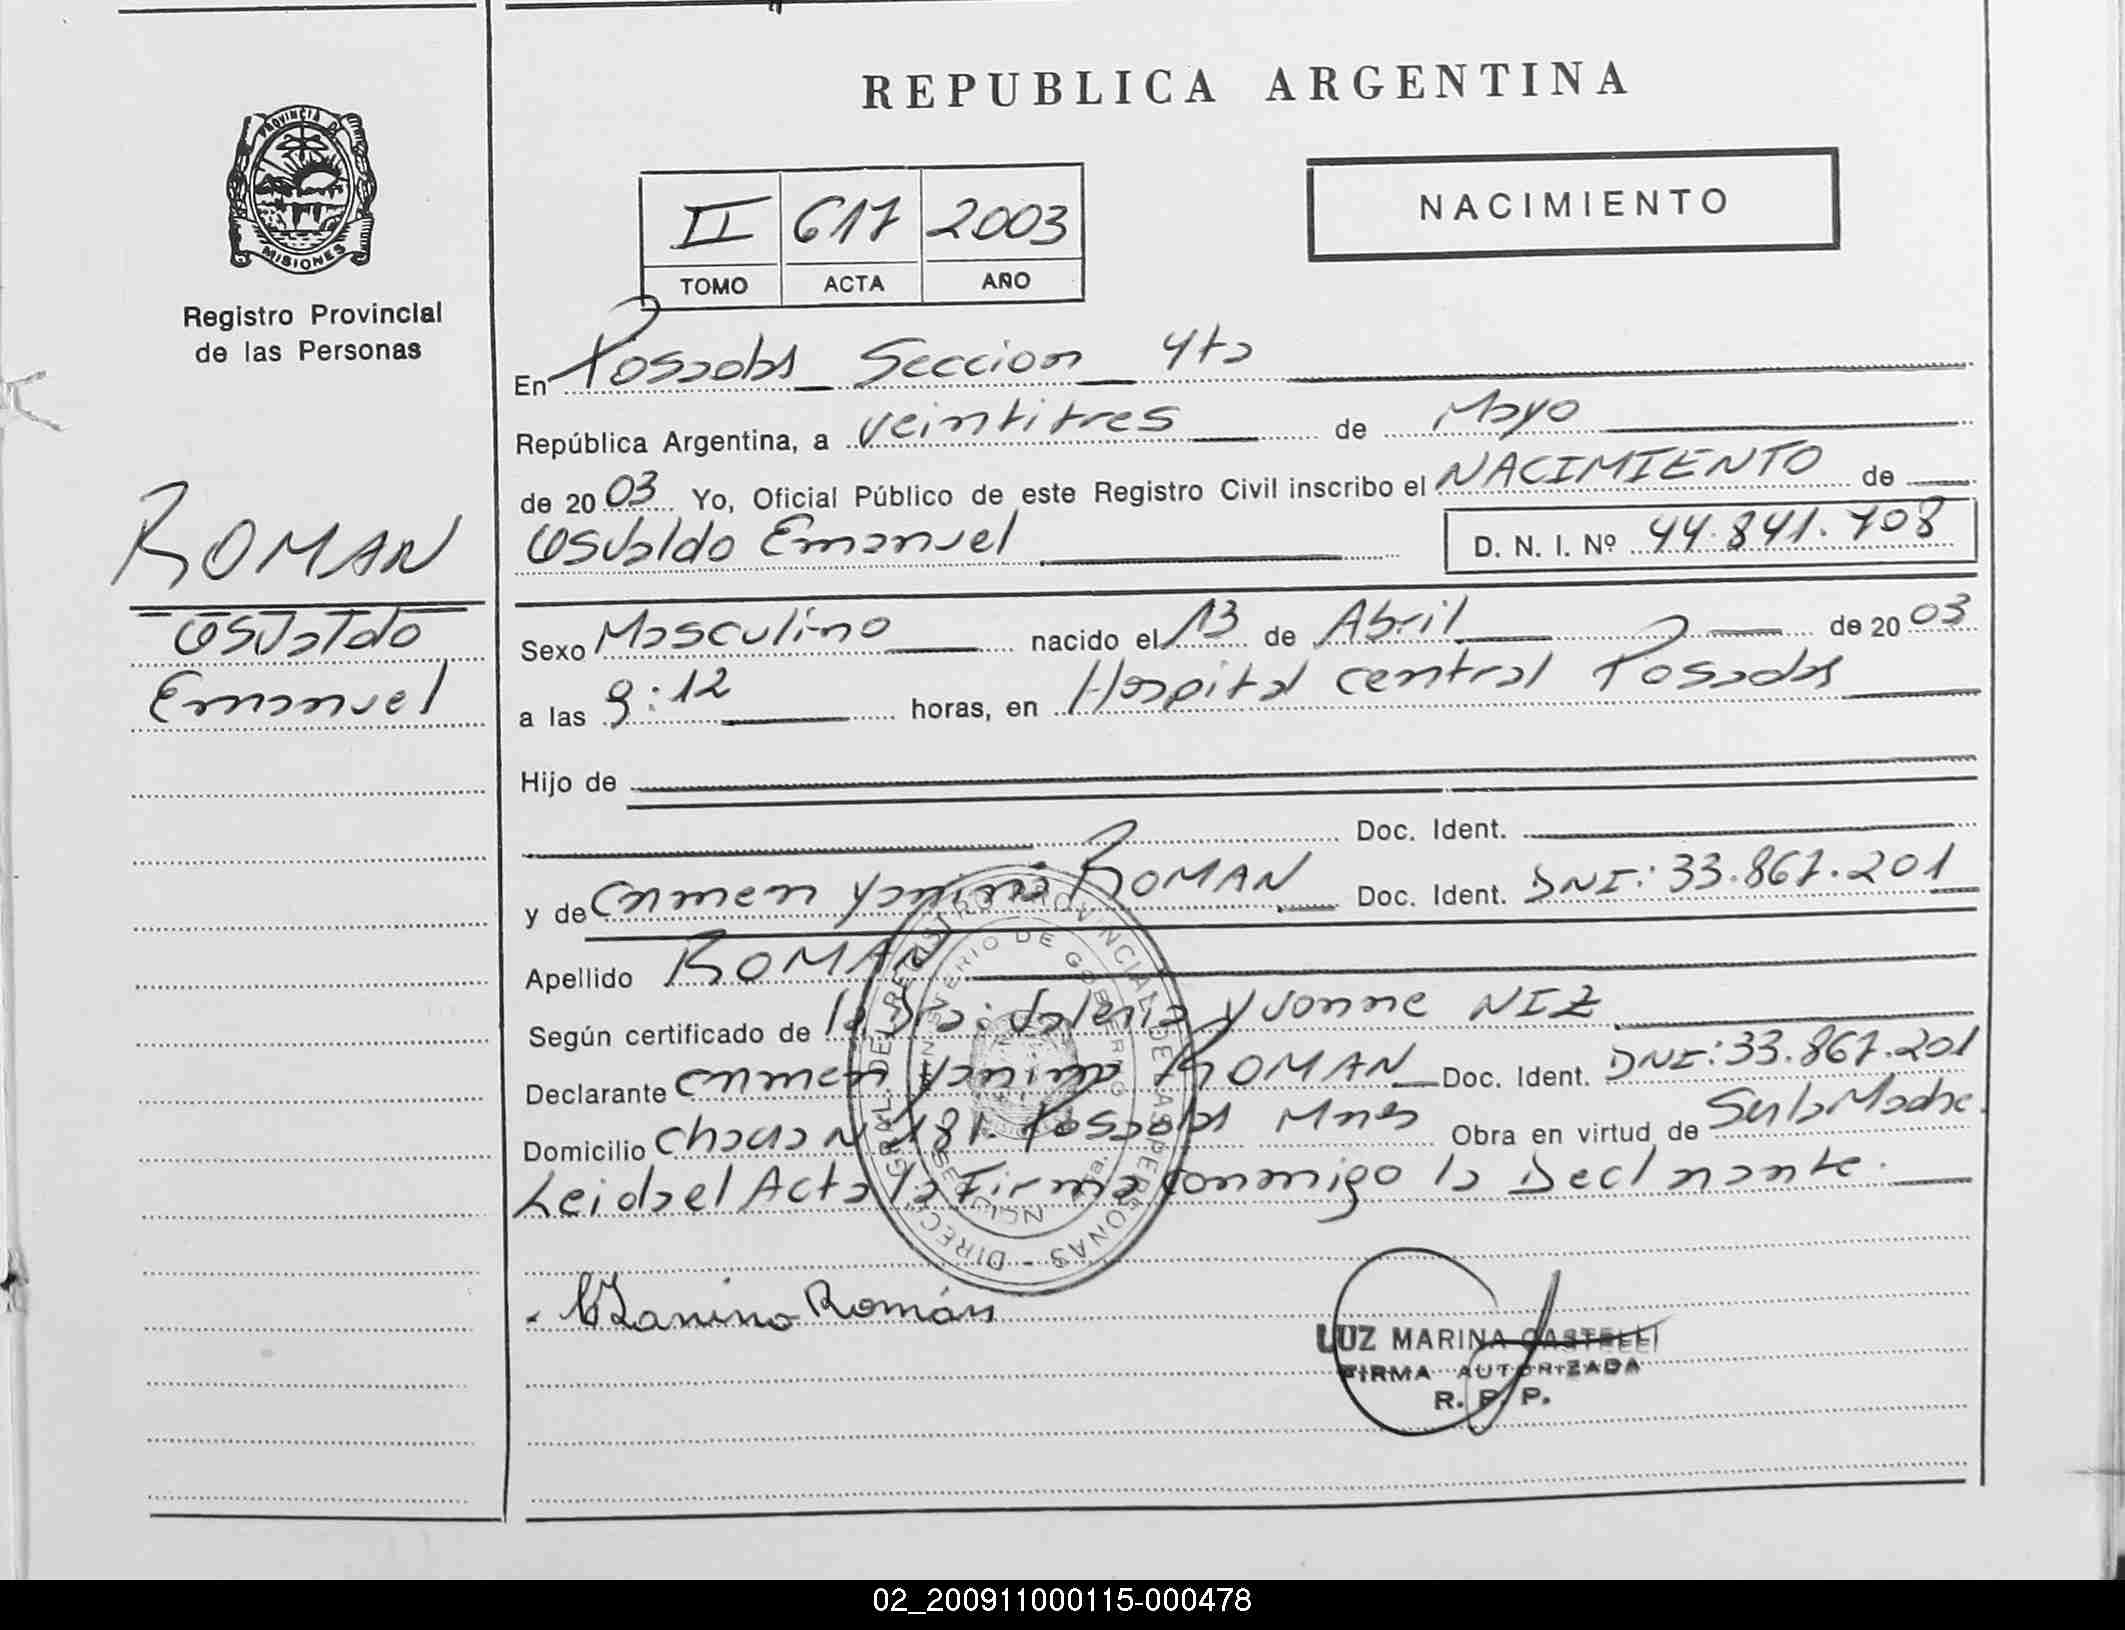 REPUBLICA ARGENTINA
PROVINCIA DE
MISIONES
Registro Provincial
de las Personas
NACIMIENTO
II 617 2003
TOMO ACTA AÑO
En Posadas Seccion 4ta
República Argentina, a veintitres de Mayo
de 2003 Yo, Oficial Público de este Registro Civil inscribo el NACIMIENTO de
Osvaldo Emanuel D. N. I. Nº 44.841.708
ROMAN
Osvaldo
Emanuel
Sexo Masculino nacido el 13 de Abril de 2003
a las 9:12 horas, en Hospital central Posadas
Hijo de
Doc. Ident.
y de Carmen Yanina ROMAN Doc. Ident. DNI: 33.867.201
Apellido ROMAN
Según certificado de la Dra: Valeria Yvonne NIZ
Declarante Carmen Yanina ROMAN Doc. Ident. DNI: 33.867.201
Domicilio Chacra N 181. Posadas Mnes Obra en virtud de Ser la Madre.
Leida el Acta la Firma conmigo la Declarante.
DIRECC. GRAL. DEL REGISTRO PROVINCIAL DE LAS PERSONAS
MINISTERIO DE GOBIERNO
Yanina Román
LUZ MARINA CASTELLI
FIRMA AUTORIZADA
R. P. P.
02_200911000115-000478